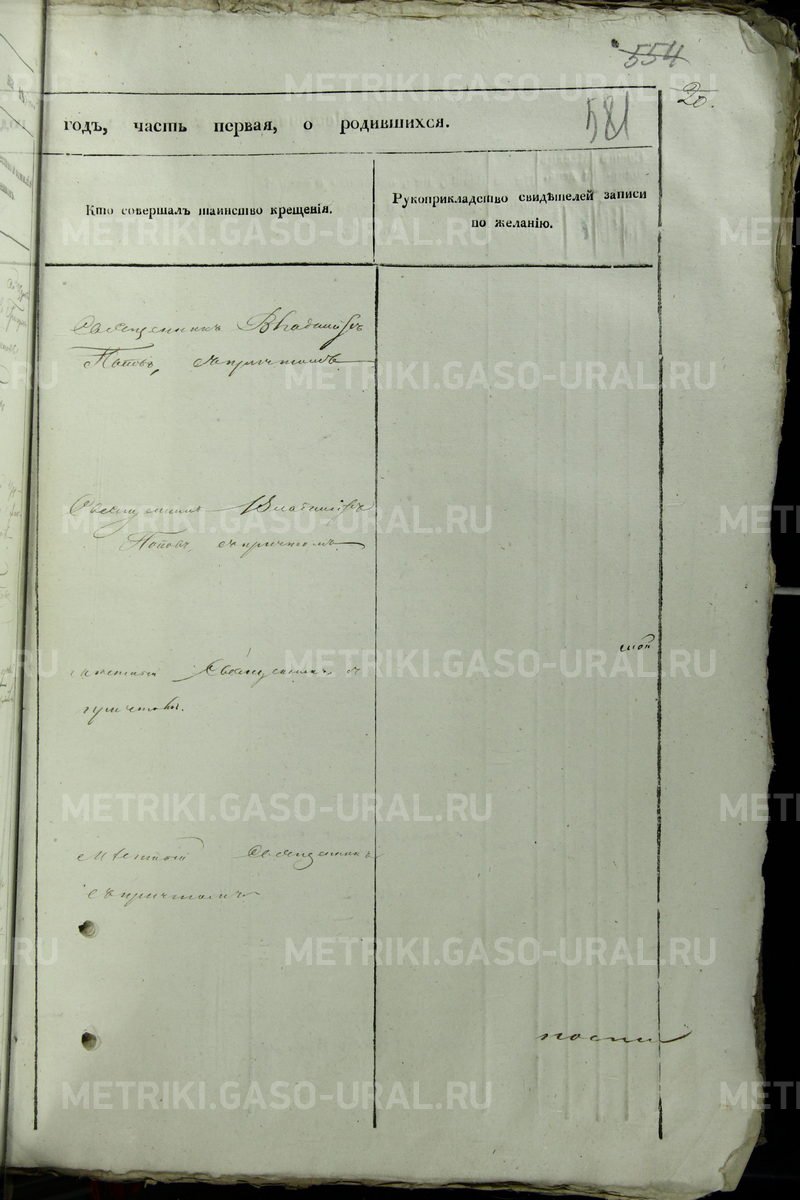 554
20.
581
годъ, часть первая, о родившихся.
Кто совершалъ таинство крещенія.
Рукоприкладство свидѣтелей записи
по желанію.
Священникъ Владимiръ
Поповъ, съ причтомъ
Священникъ Владимiръ
Поповъ, съ причтомъ
мѣстной Священникъ съ
причтомъ.
мѣстной Священникъ
съ причтомъ
METRIKI.GASO-URAL.RU